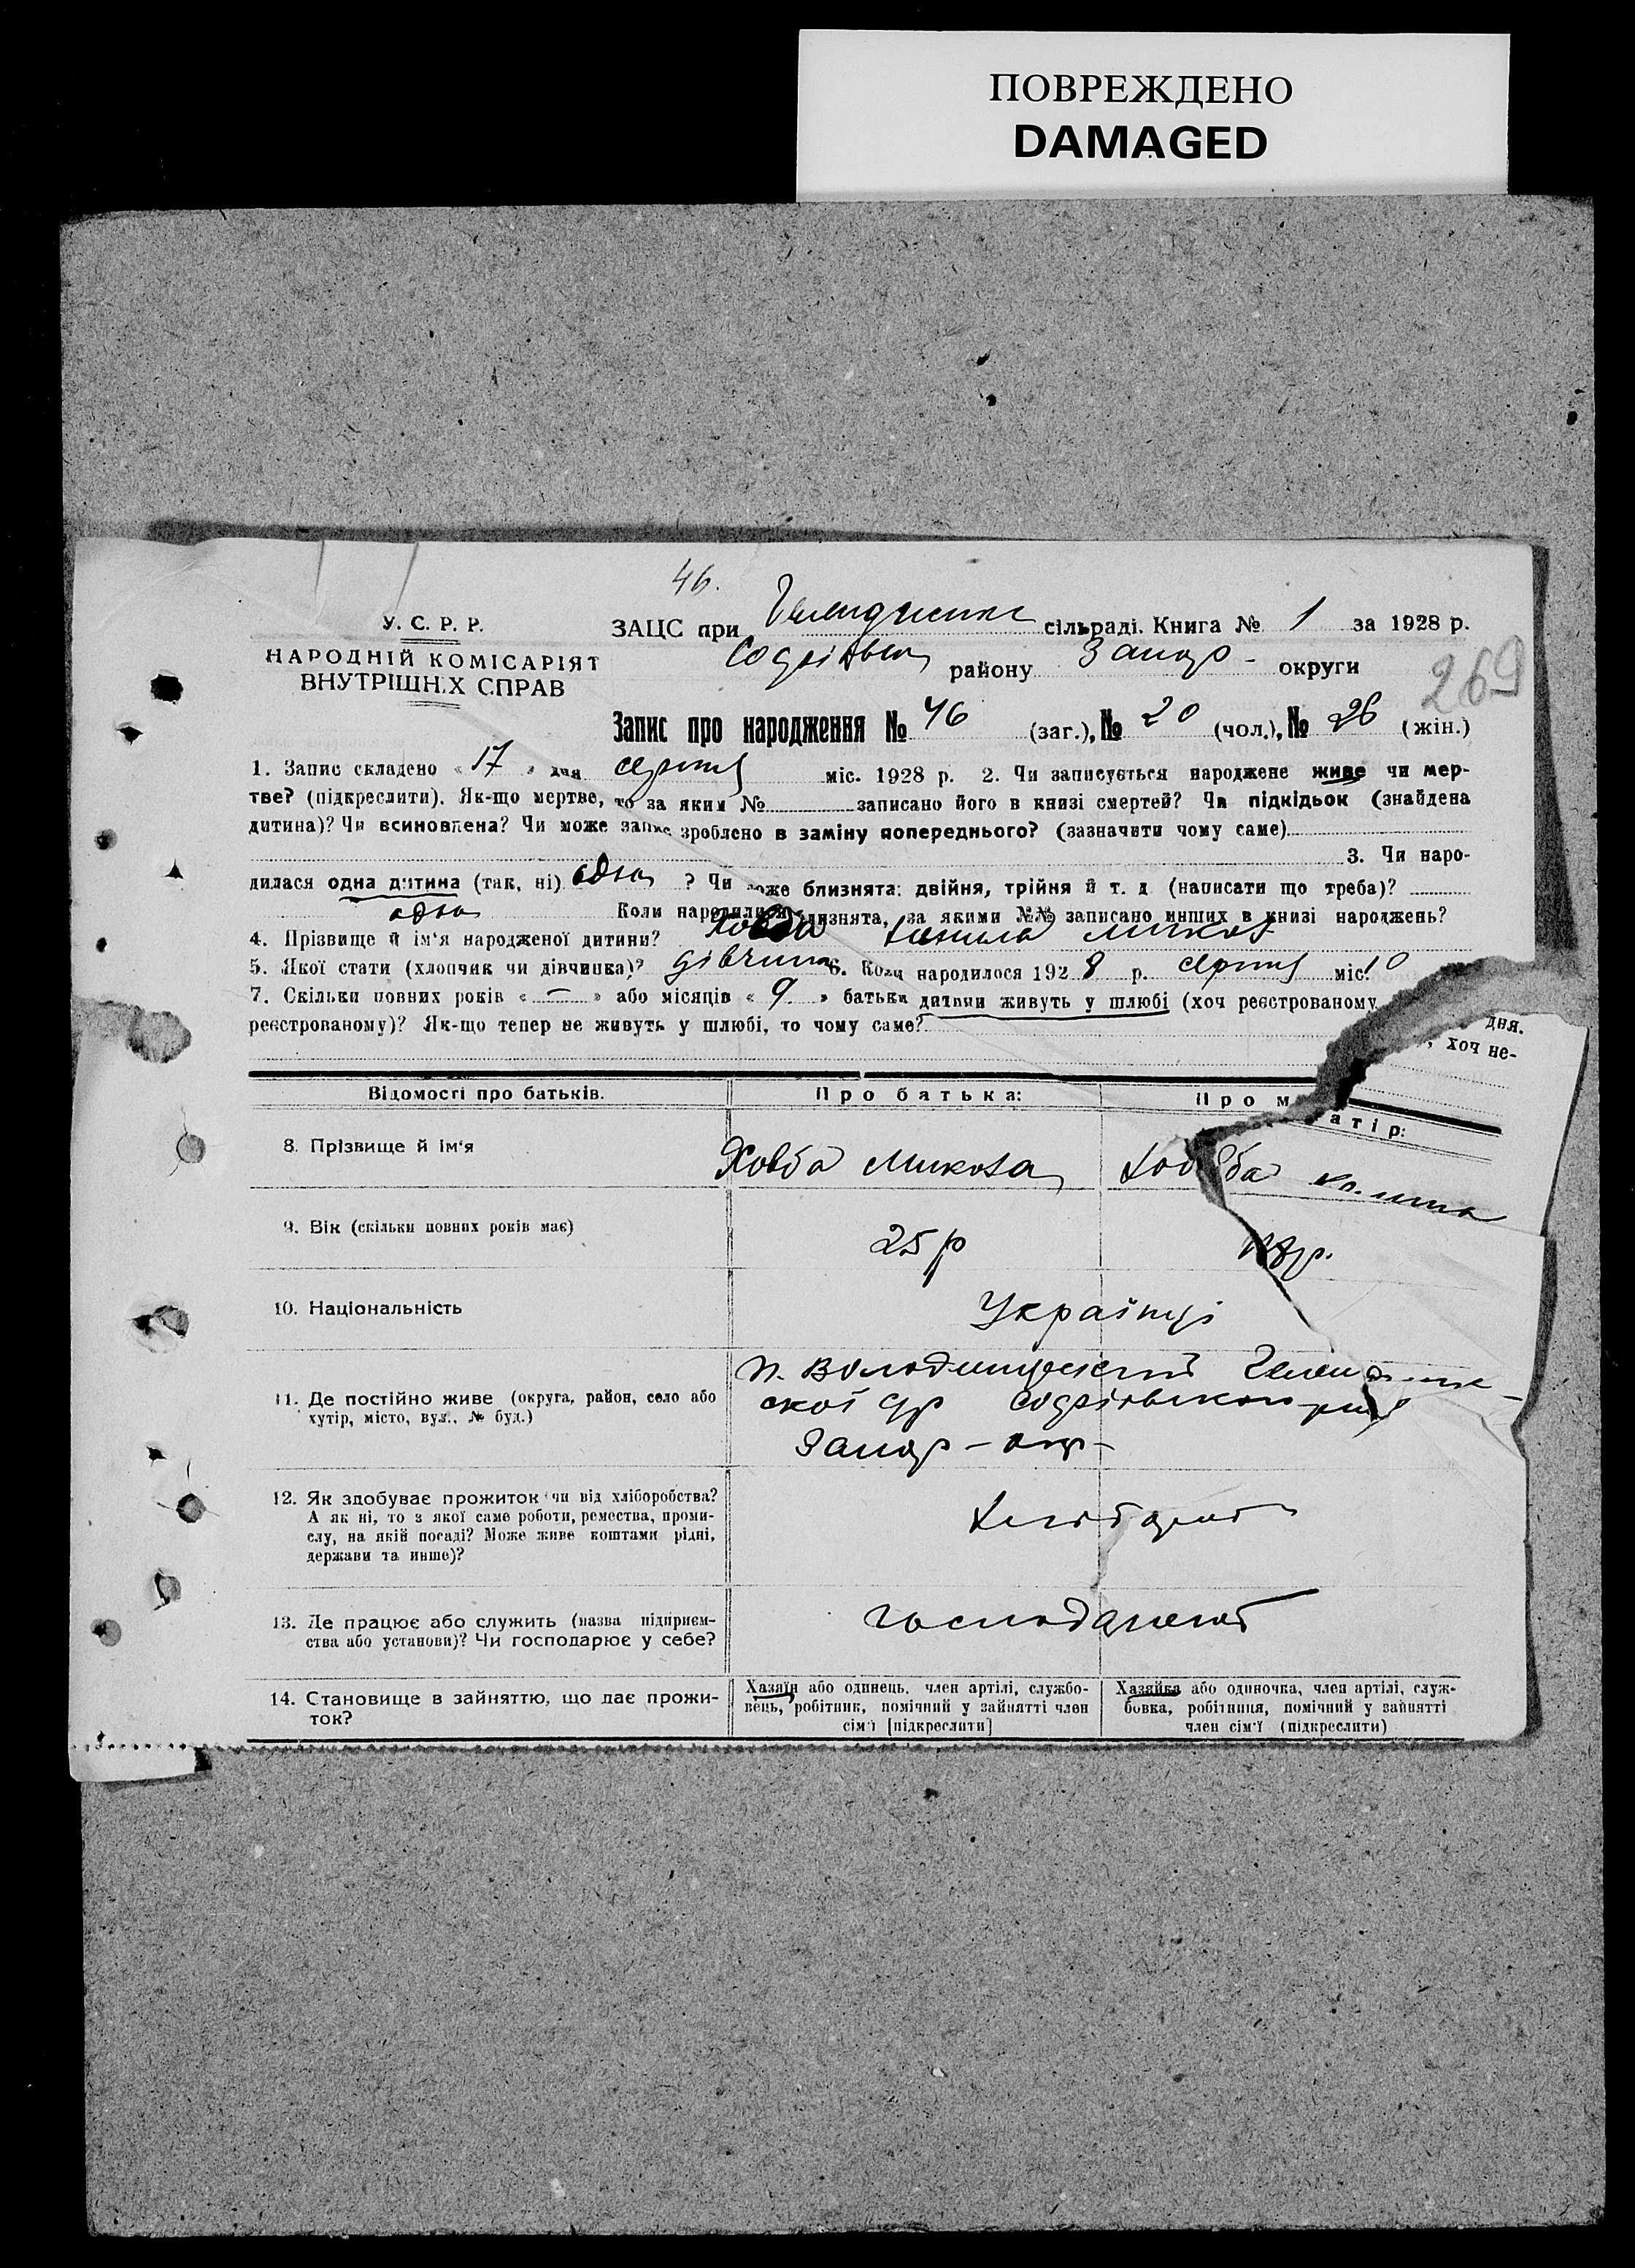 ПОВРЕЖДЕНО
DAMAGED
46.
У. С. Р. Р.
НАРОДНІЙ КОМІСАРІЯТ
ВНУТРІШНІХ СПРАВ
ЗАЦС при сільраді. Книга № 1 за 1928 р.
району Запор- округи
269
Запис про народження № 46 (заг.), № 20 (чол.), № 26 (жін.)
1. Запис складено « 17 » дня серпня міс. 1928 р. 2. Чи записується народжене живе чи мер-
тве? (підкреслити). Як-що мертве, то за яким № записано його в книзі смертей? Чи підкідьок (знайдена
дитина)? Чи всиновлена? Чи може запис зроблено в заміну попереднього? (зазначити чому саме)
3. Чи наро-
дилася одна дитина (так, ні) одна ? Чи може близнята: двійня, трійня й т. д (написати що треба)?
одна Коли народилися близнята, за якими №№ записано инших в книзі народжень?
4. Прізвище й ім'я народженої дитини? Ховба
5. Якої стати (хлопчик чи дівчинка)? дівчина 6. Коли народилося 1928 р. серпня міс. 10 дня.
7. Скільки повних років « — » або місяців « 9 » батьки дитини живуть у шлюбі (хоч реєстрованому, хоч не-
реєстрованому)? Як-що тепер не живуть у шлюбі, то чому саме?
Відомості про батьків. Про батька: Про матір:
8. Прізвище й ім'я Ховба Микола Ховба
9. Вік (скільки повних років має) 25 р
10. Національність Українці
11. Де постійно живе (округа, район, село або
хутір, місто, вул., № буд.)
Запор - окр -
12. Як здобуває прожиток чи від хліборобства?
А як ні, то з якої саме роботи, ремества, проми-
слу, на якій посаді? Може живе коштами рідні,
держави та инше)?
13. Де працює або служить (назва підприєм-
ства або установи)? Чи господарює у себе?
14. Становище в зайняттю, що дає прожи-
ток?
Хазяїн або одинець, член артілі, службо-
вець, робітник, помічний у зайнятті член
сім'ї [підкреслити]
Хазяйка або одиночка, член артілі, служ-
бовка, робітниця, помічний у зайнятті
член сім'ї (підкреслити)